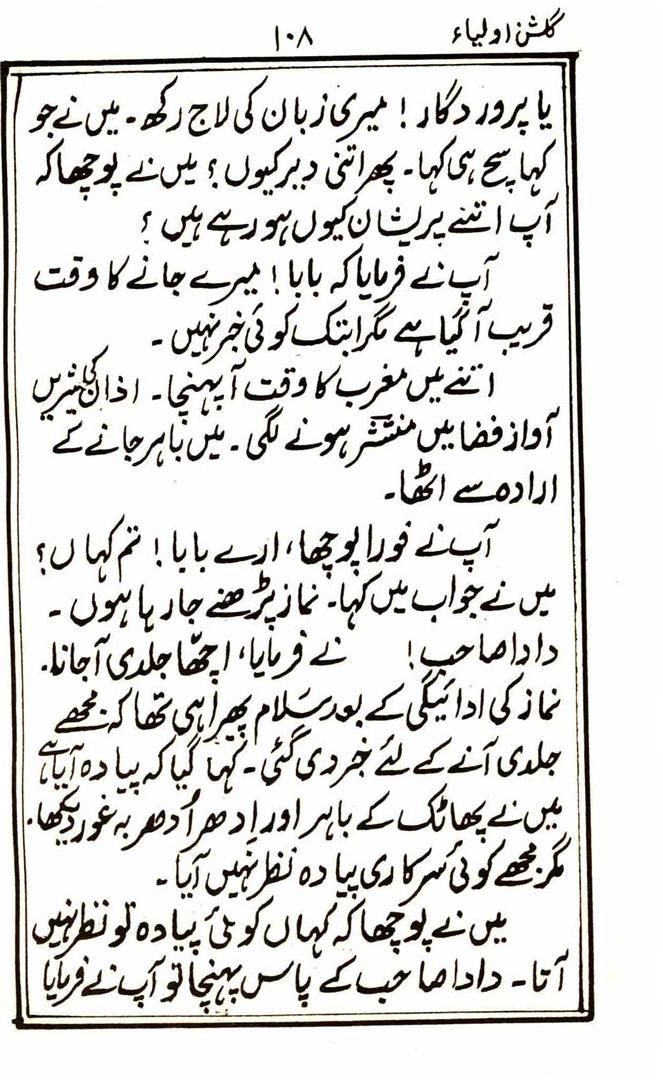 گلشن اولیاء
۱۰۸
یا پروردگار! میری زبان کی لاج رکھ۔ میں نے جو
کہا سچ ہی کہا۔ پھر اتنی دیر کیوں؟ میں نے پوچھا کہ
آپ اتنے پریشان کیوں ہو رہے ہیں؟
آپ نے فرمایا کہ بابا! میرے جانے کا وقت
قریب آ گیا ہے مگر ابتک کوئی خبر نہیں۔
اتنے میں مغرب کا وقت آ پہنچا۔ اذان کی شیریں
آواز فضا میں منتشر ہونے لگی۔ میں باہر جانے کے
ارادہ سے اٹھا۔
آپ نے فوراً پوچھا، ارے بابا! تم کہاں؟
میں نے جواب میں کہا۔ نماز پڑھنے جا رہا ہوں۔
دادا صاحب! نے فرمایا، اچھّا جلدی آ جانا۔
نماز کی ادائیگی کے بعد سَلام پھیرا ہی تھا کہ مجھے
جلدی آنے کے لئے خبر دی گئی۔ کہا گیا کہ پیادہ آیا ہے
میں نے پھاٹک کے باہر اور اِدھر اُدھر بہ غور دیکھا۔
مگر مجھے کوئی سرکاری پیادہ نظر نہیں آیا۔
میں نے پوچھا کہ کہاں کوئی پیادہ تو نظر نہیں
آتا۔ دادا صاحب کے پاس پہنچا تو آپ نے فرمایا